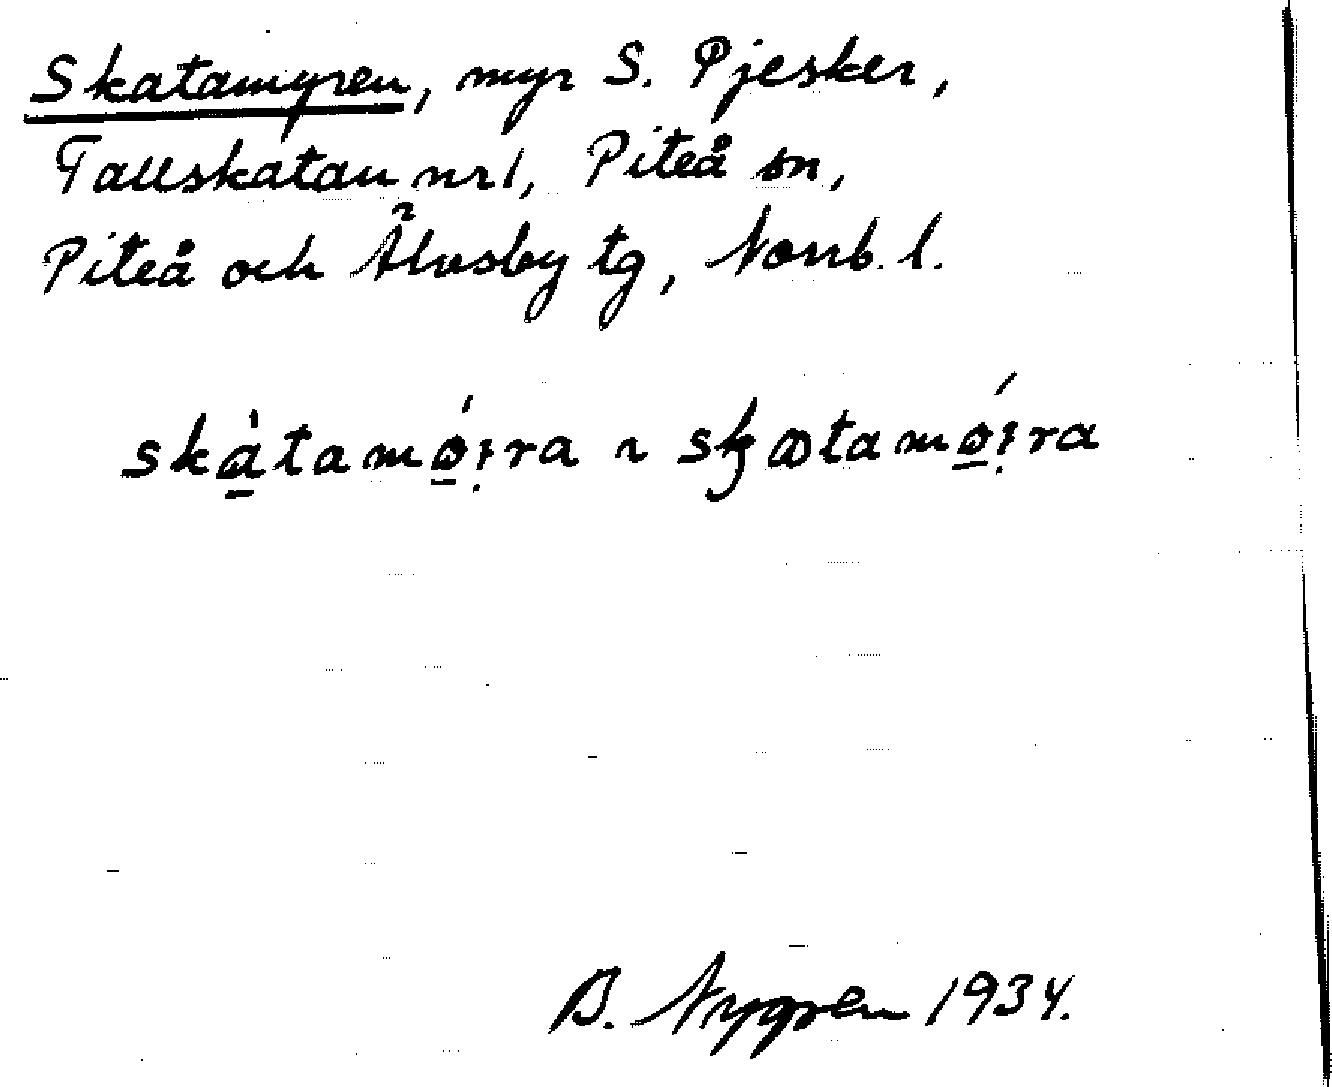 Skatamyren, myr S. Pjesker,
Tallskatan nr 1, Piteå sn,
Piteå och Älvsby tg, Norrb. l.
skàtamǿi̯ra ~ skatamǿi̯ra
B. Nygren 1934.